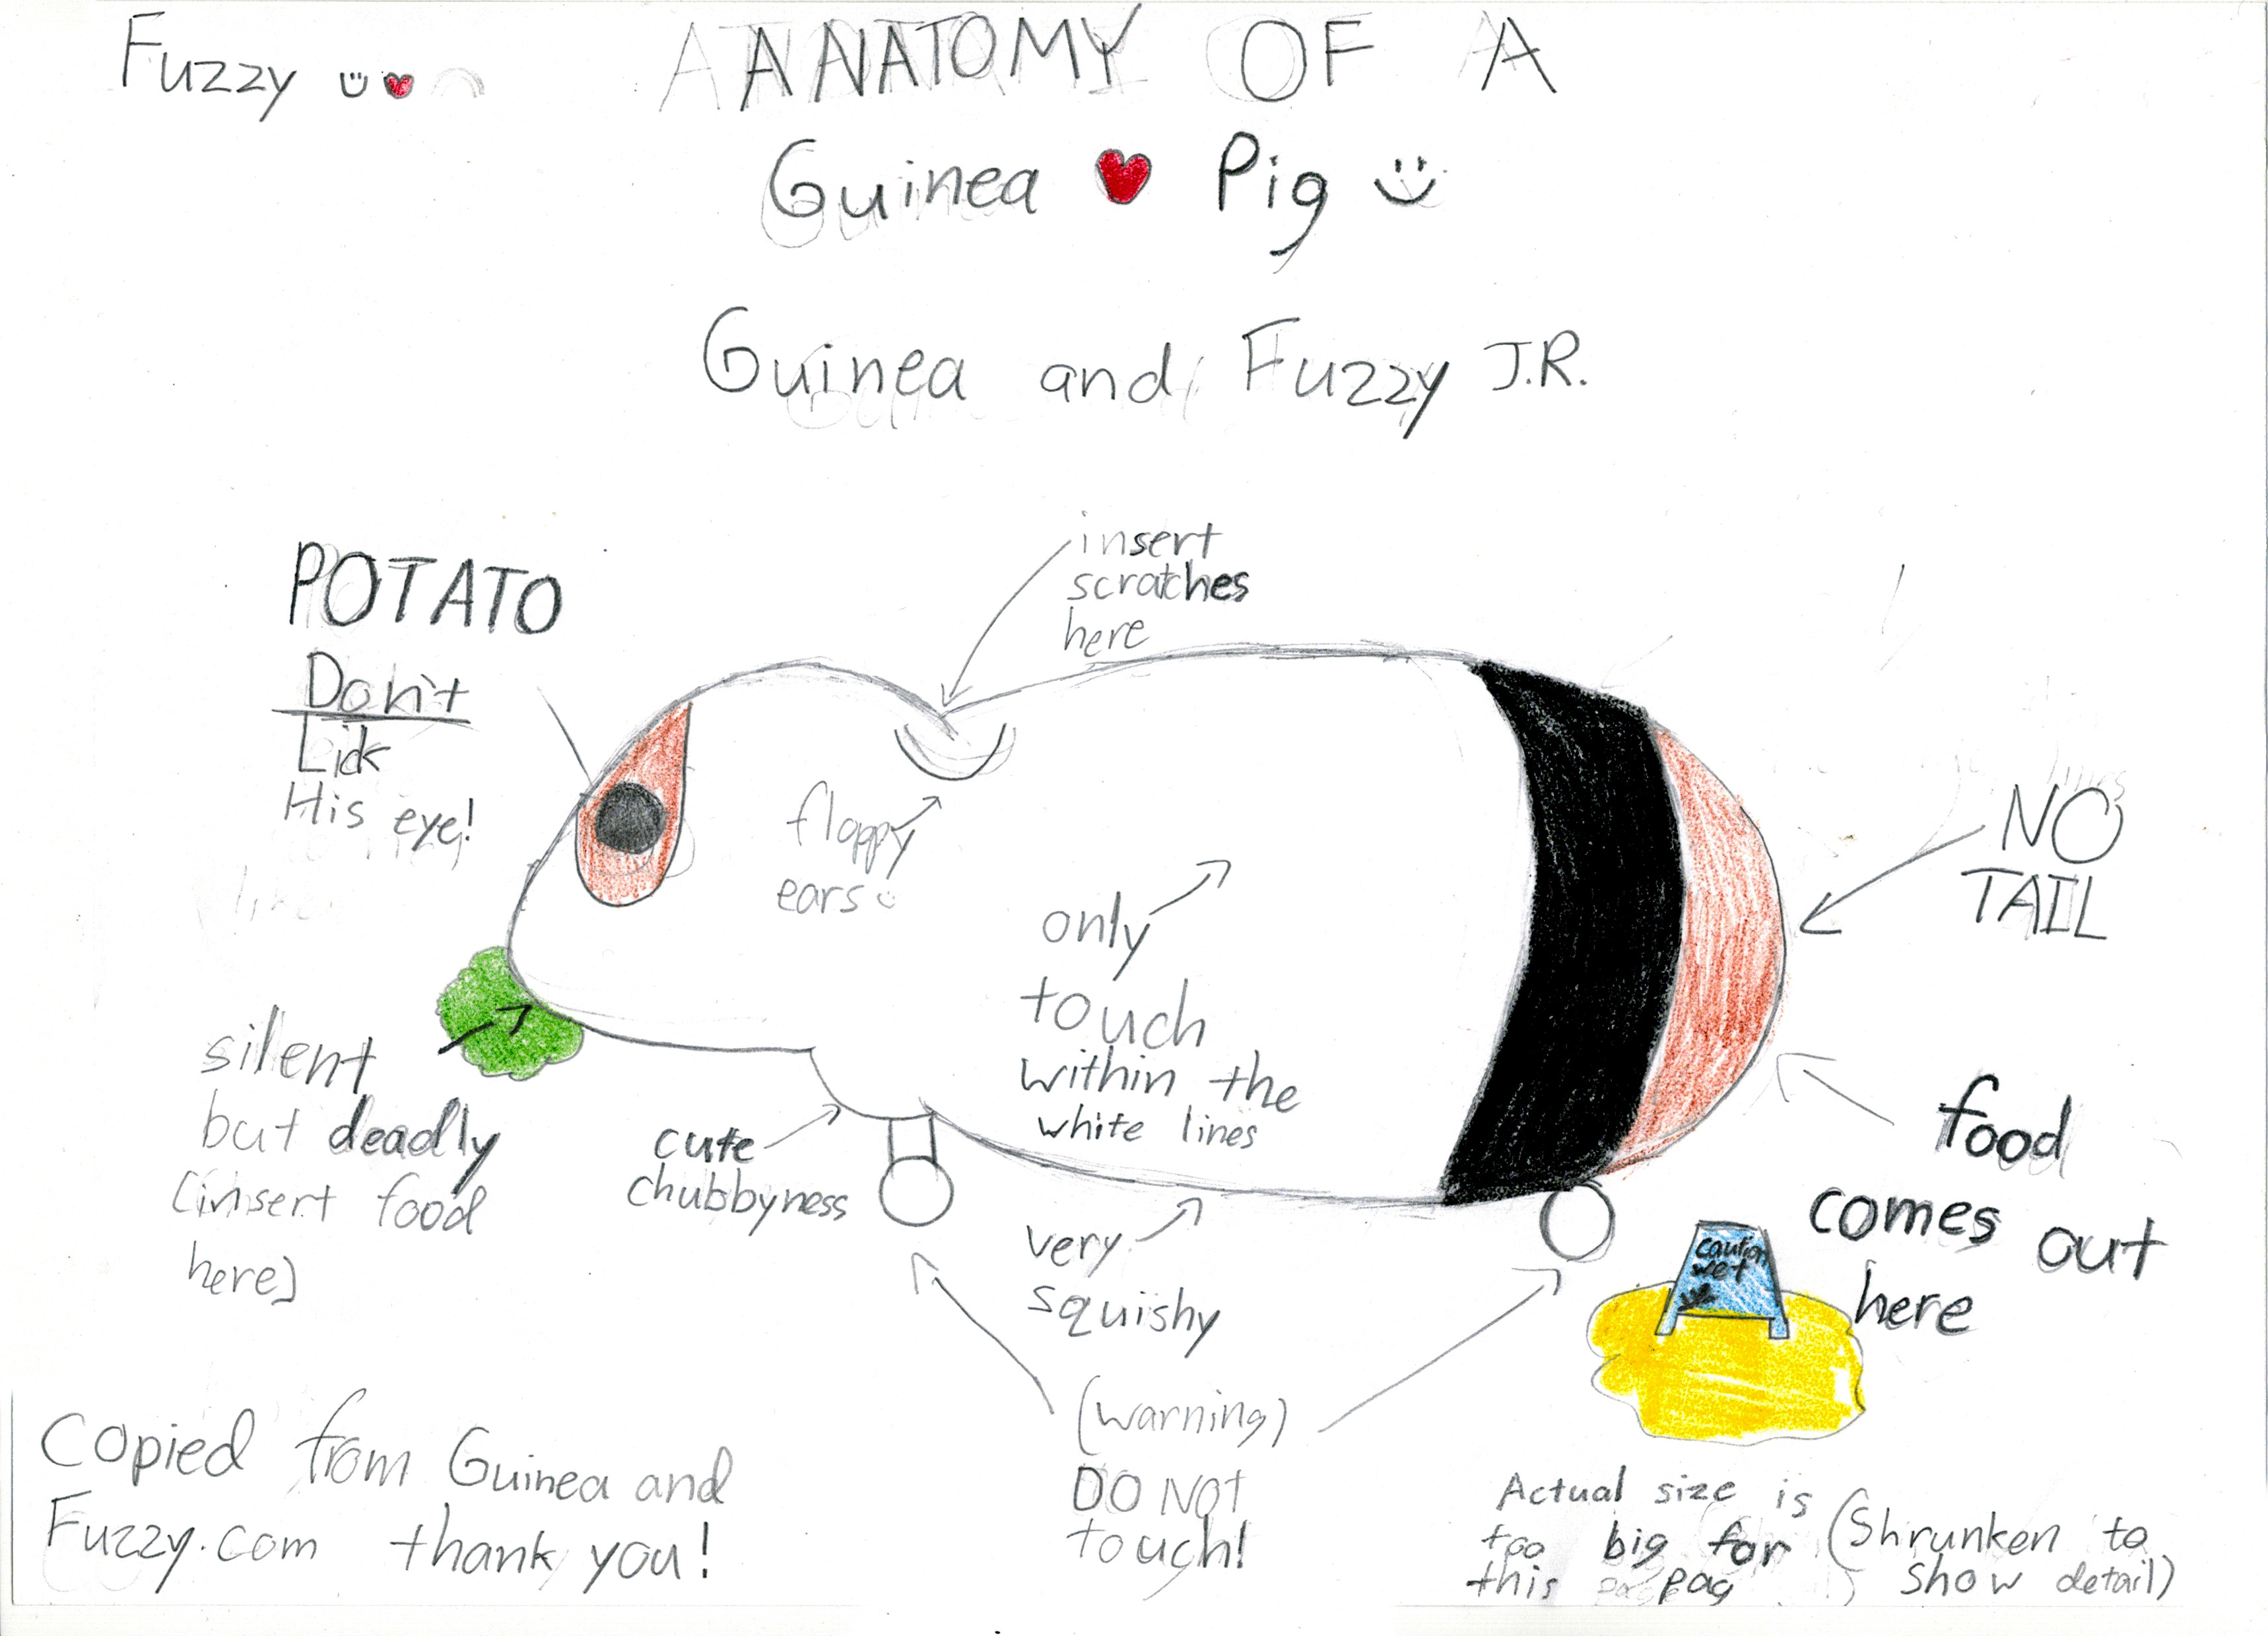 Fuzzy
ANATOMY OF A
Guinea Pig
Guinea and Fuzzy J.R.
POTATO
Don't
Lick
His eye!
insert
scratches
here
floppy
ears
only
touch
within the
white lines
NO
TAIL
silent
but deadly
(insert food
here)
cute
chubbyness
very
squishy
food
comes out
here
caution
wet
(warning)
DO NOT
touch!
Copied from Guinea and
Fuzzy.com thank you!
Actual size is
too big for
this pag
(Shrunken to
show detail)